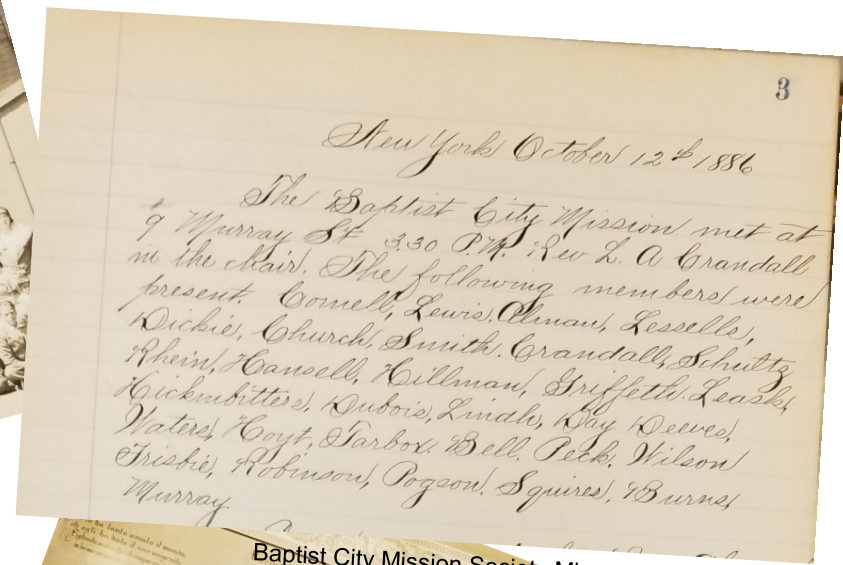 3
New York October 12th 1886
The Baptist City Mission met at
9 Murray St 3.30 P.M. Rev L. A Crandall
in the chair. The following members were
present. Cornell, Lewis. Ulman, Lesselle,
Dickie, Church, Smith. Crandall, Schultz
Rhein, Hansell, Hillman, Griffeth. Leask,
Hickmbitters, Dubois, Lindh, Day Deeves,
Waters, Hoyt, Tarbox. Bell. Peck. Wilson
Frisbie, Robinson, Pogson. Squires, Burns,
Murray
ha tanto amato il mondo,
egli ha dato il suo unigenito
Baptist City Mission Society